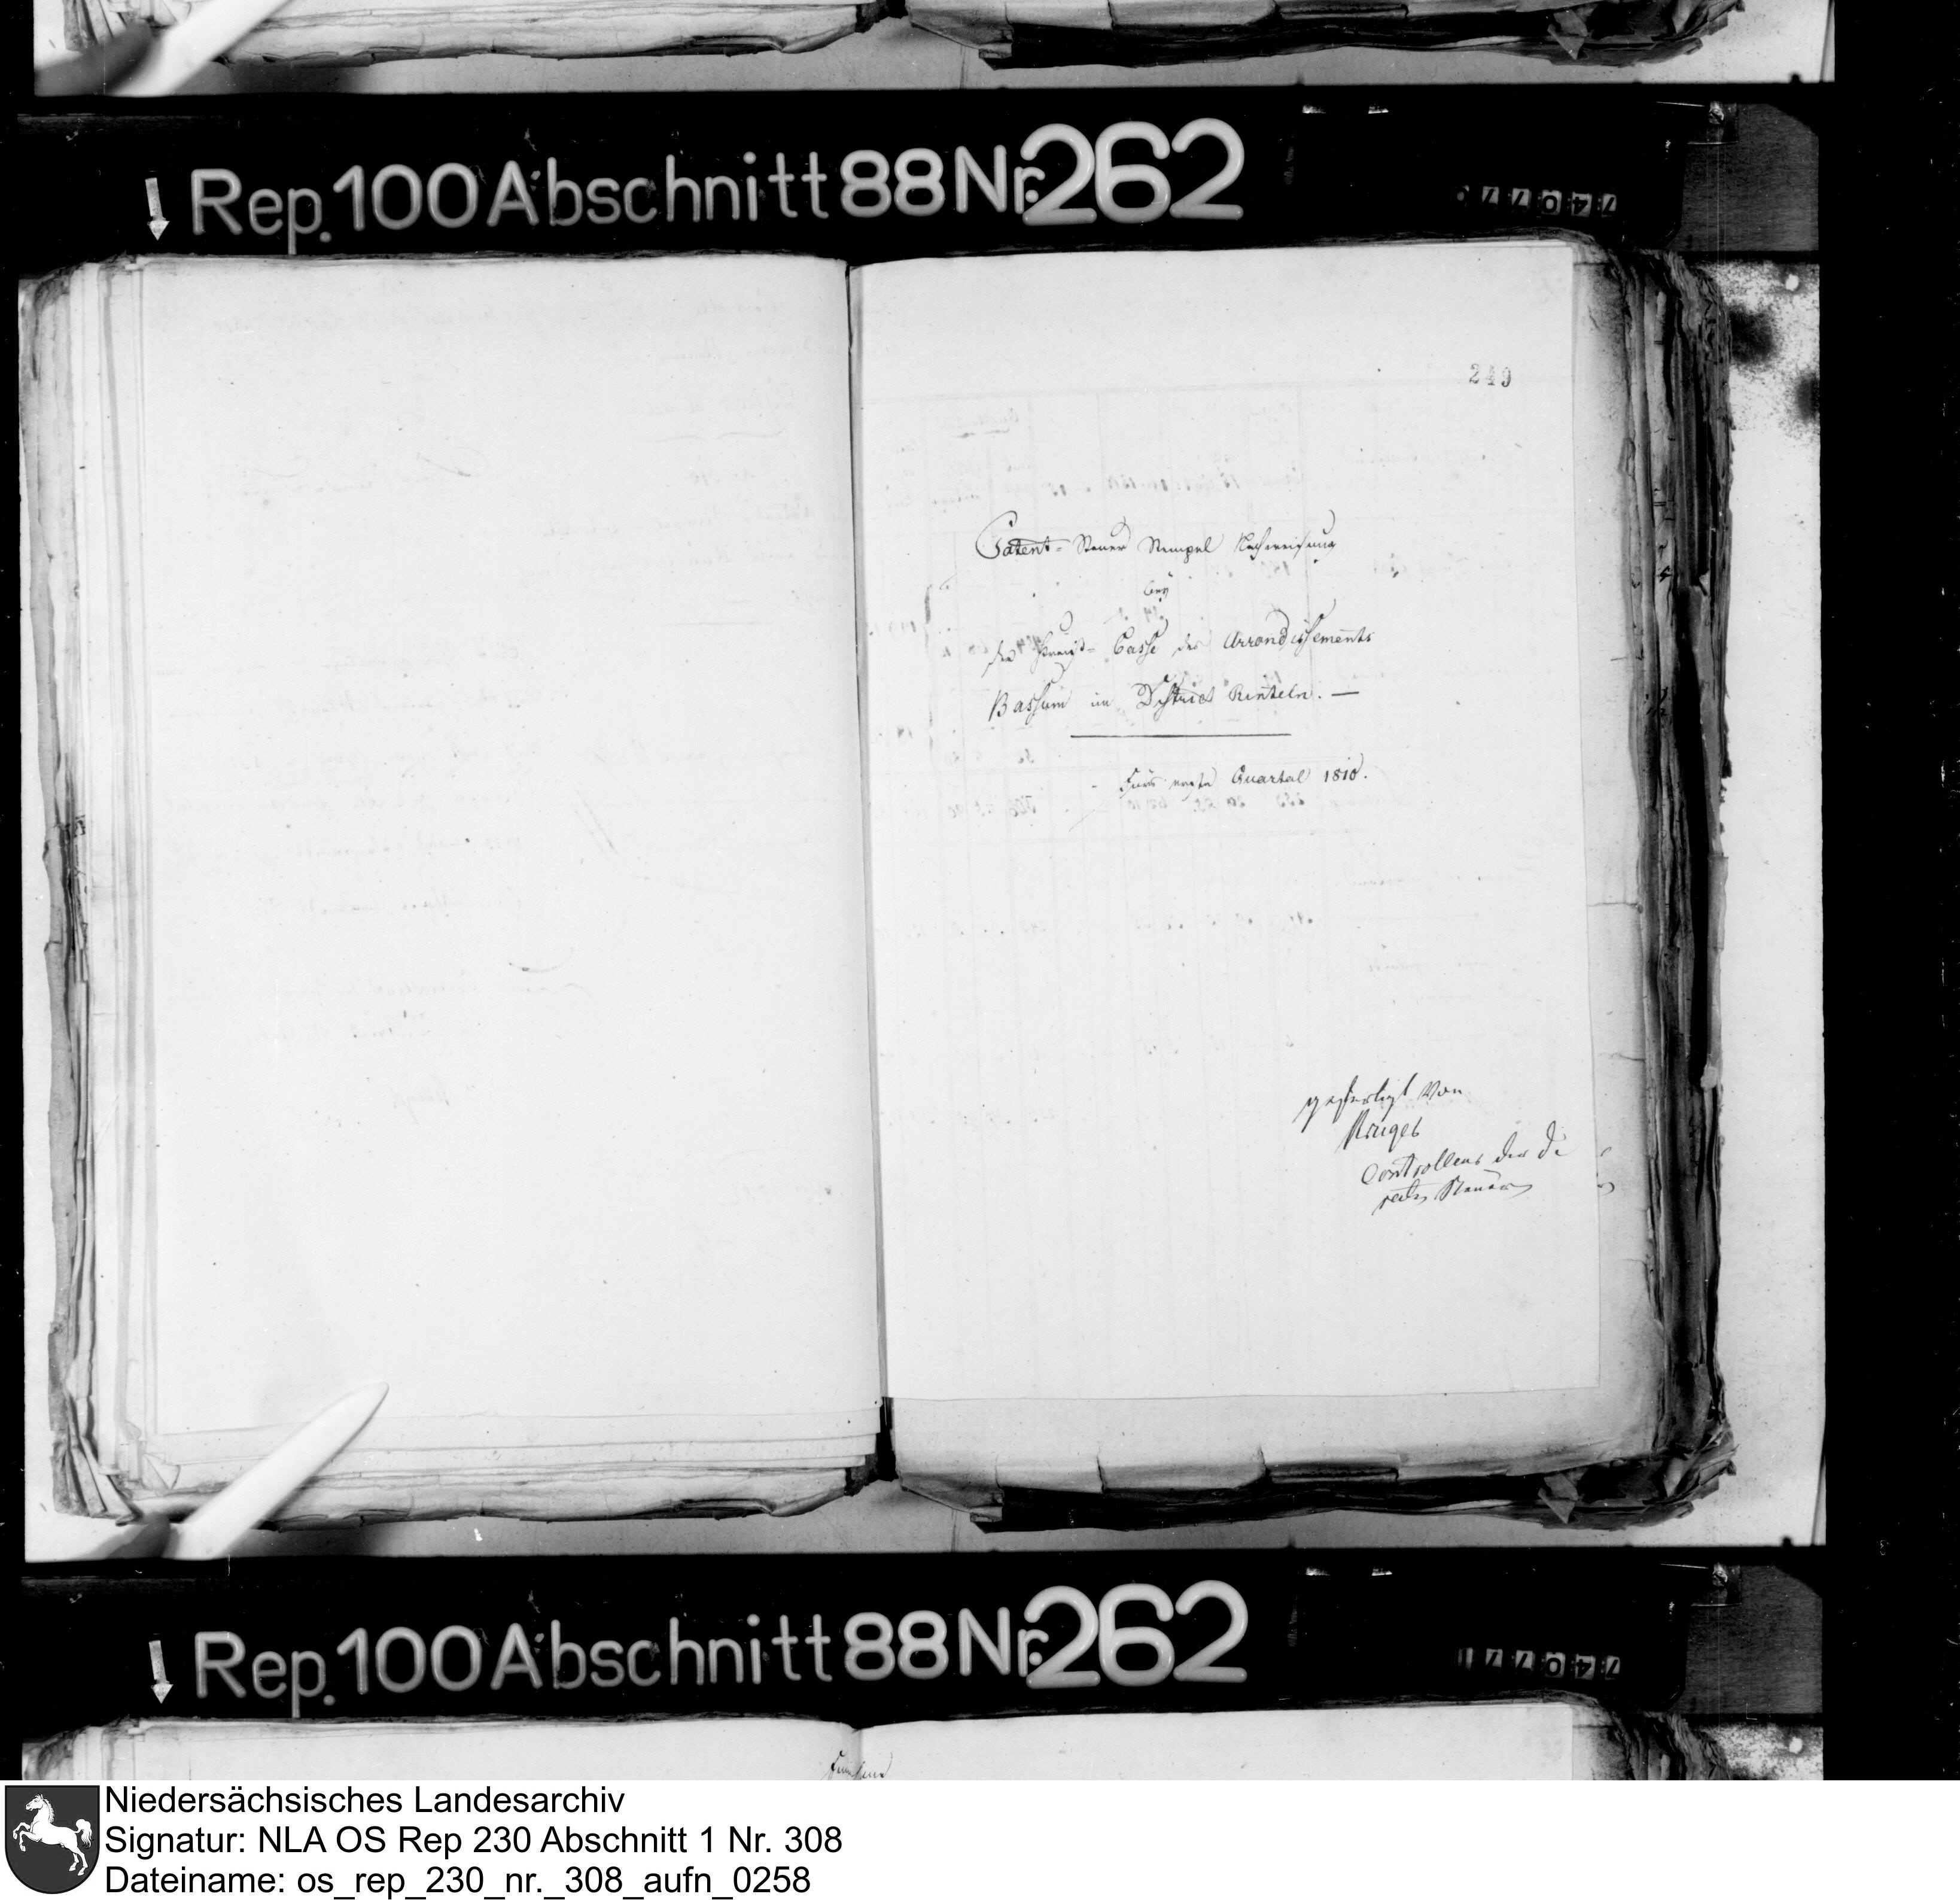 Rep. 100 Abschnitt 88 Nr. 262
249
Patent-Steuer Stempel Nachweisung
bey
der Kreis-Casse des Arrondissements
Bassum im District Rinteln. —
Fürs erste Quartal 1810.
gefertigt von
Kruger
Controlleur der di
recten Steuern
Rep. 100 Abschnitt 88 Nr. 262
Niedersächsisches Landesarchiv
Signatur: NLA OS Rep 230 Abschnitt 1 Nr. 308
Dateiname: os_rep_230_nr._308_aufn_0258